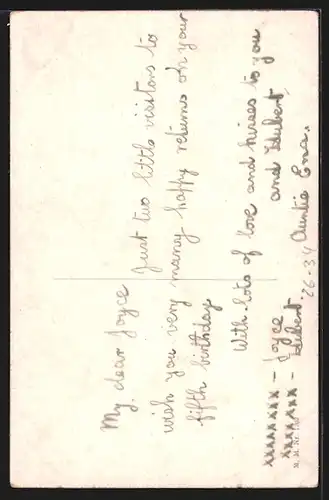 My dear Joyce
Just two little visitors to
wish you very many happy returns on your
fifth birthday
With lots of love and kisses to you
and Hubert,
xxxxxxx - Joyce
xxxxxxx - Hubert.
26-34 Auntie Ena.
M. M. Nr.